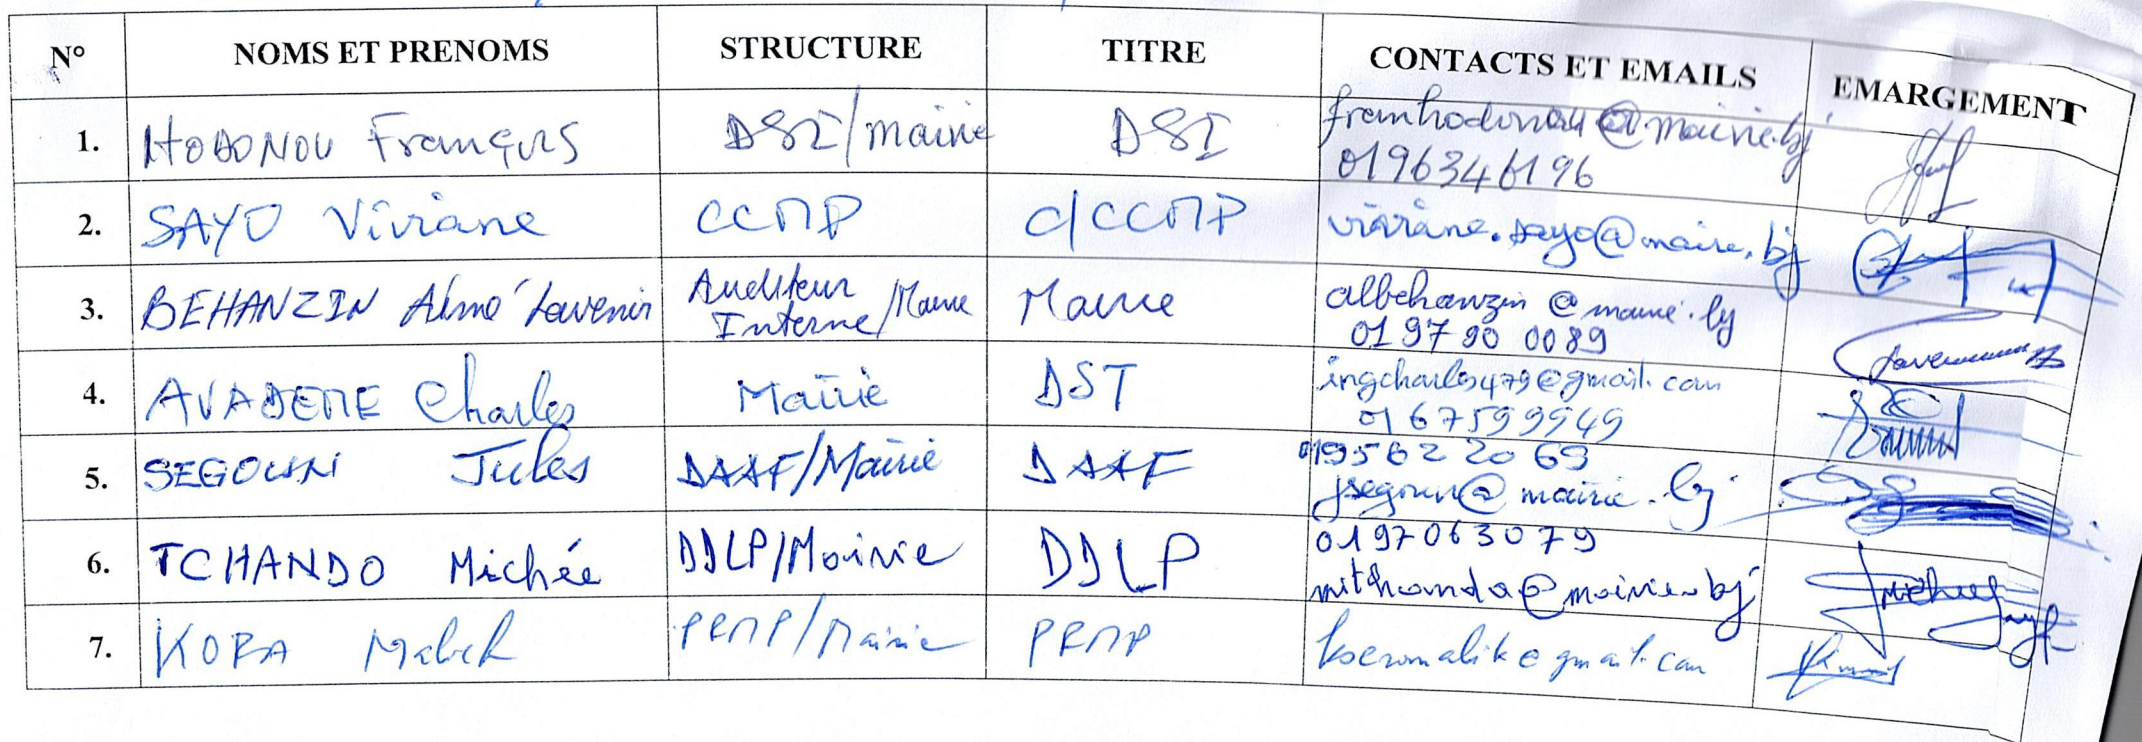 N° NOMS ET PRENOMS STRUCTURE TITRE CONTACTS ET EMAILS EMARGEMENT
1. HODONOU François DSI/mairie DSI franhodonou@mairie.bj
0196346196
2. SAYO Viviane CCMP C/CCMP viviane.sayo@mairie.bj
3. BEHANZIN Aimé Lavenir Auditeur Interne/Mairie Mairie albehanzin@mairie.bj
01 97 90 0089
4. AVADEME Charles Mairie DST ingcharles479@gmail.com
01 67599949
5. SEGOUN Jules DAAF/Mairie DAAF 0195622069
jsegoun@mairie.bj
6. TCHANDO Michée DDLP/Mairie DDLP 0197063079
mitchando@mairie.bj
7. KORA Malick PRMP/Mairie PRMP